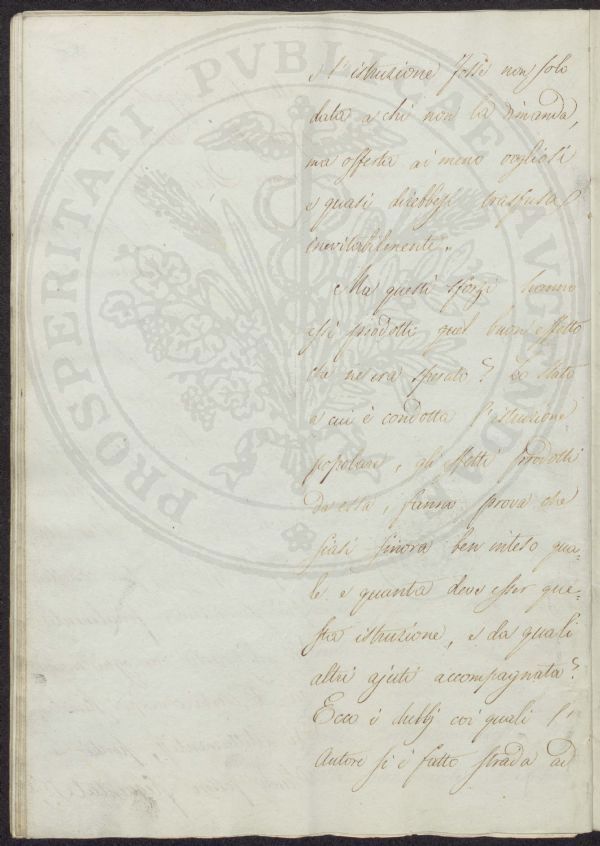 e l'istruzione fosse non solo
data a chi non la dimanda,
ma offerta ai meno vogliosi
e quasi direbbesi trasfusa
inevitabilmente.
Ma questi sforzi hanno
essi prodotti quel buon effetto
che ne era sperato? Lo stato
a cui è condotta l'istruzione
popolare, gli effetti prodotti
da essa, fanno prova che
siasi finora ben inteso qua-
le e quanta deve esser que-
sta istruzione, e da quali
altri ajuti accompagnata?
Ecco i dubbj coi quali l'
Autore si è fatto strada ad
PROSPERITATI PVBLICAE AVGENDAE